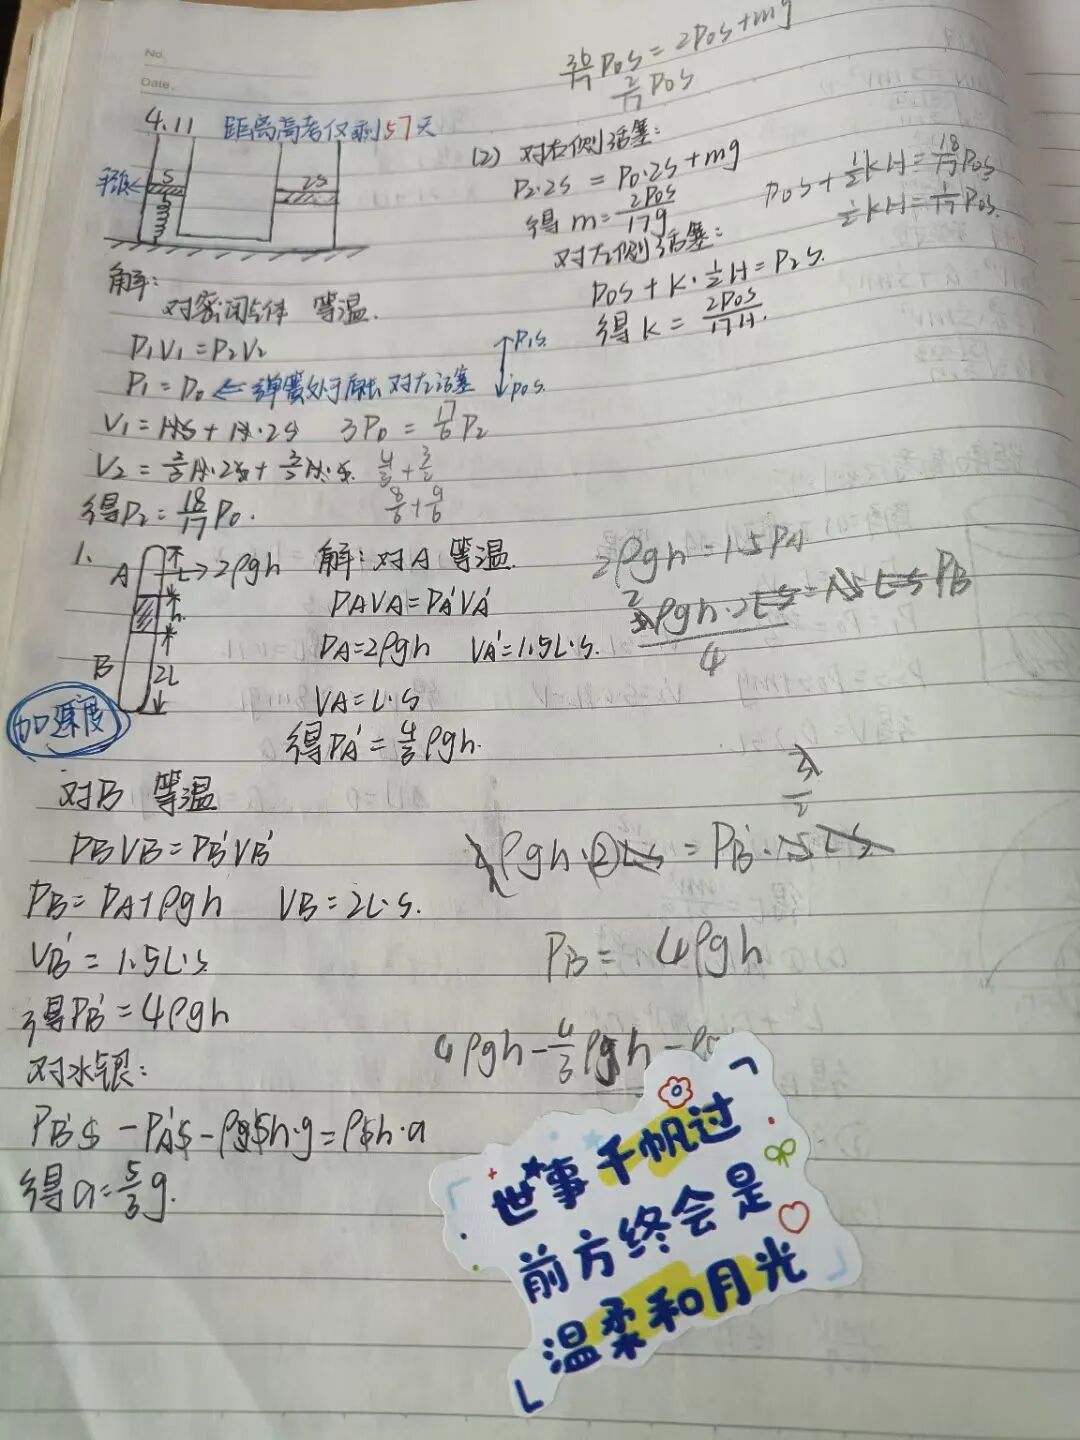 No.
Date.
4.11 距离高考仅剩57天
S
2S
解:
对密闭气体 等温.
P₁V₁=P₂V₂
P₁=P₀ ← 弹簧处于原长 对左活塞
↑P₁S.
↓P₀S.
V₁=HS+H·2S 3P₀=17/6 P₂
V₂=2/3H·2S+3/2H·S. 4/3+3/2
8/6+9/6
得P₂=18/17 P₀.
36/17 P₀S=2P₀S+mg
2/17 P₀S
(2) 对右侧活塞:
P₂·2S=P₀·2S+mg
得m=2P₀S/17g
对左侧活塞:
P₀S+K·1/2H=P₂S.
得K=2P₀S/17H.
P₀S+1/2KH=18/17P₀S
1/2KH=1/17P₀S.
1.
A
L→2ρgh
h
B
2L
加速度
解: 对A 等温.
PAVA=PA'VA'
PA=2ρgh VA'=1.5L·S.
VA=L·S
得PA'=4/3ρgh.
2ρgh=1.5PA
对B 等温
PBVB=PB'VB'
PB=PA+ρgh VB=2L·S.
VB'=1.5L·S
得PB'=4ρgh
对水银:
PB'S-PA'S-ρSh·g=ρSh·a
得a=5/3g.
PB=4ρgh
4ρgh-4/3ρgh-
世事千帆过
前方终会是
温柔和月光